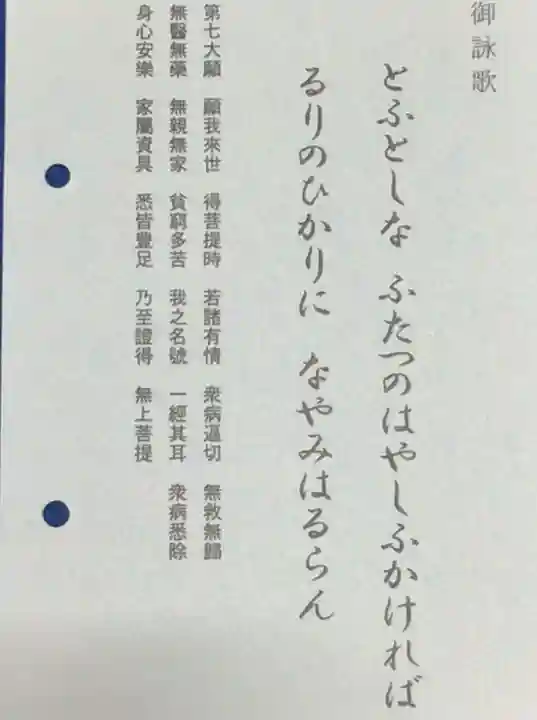 御詠歌
とふとしな ふたつのはやしふかければ
るりのひかりに なやみはるらん
第七大願 願我來世 得菩提時 若諸有情 衆病逼切 無救無歸
無醫無藥 無親無家 貧窮多苦 我之名號 一經其耳 衆病悉除
身心安樂 家屬資具 悉皆豐足 乃至證得 無上菩提